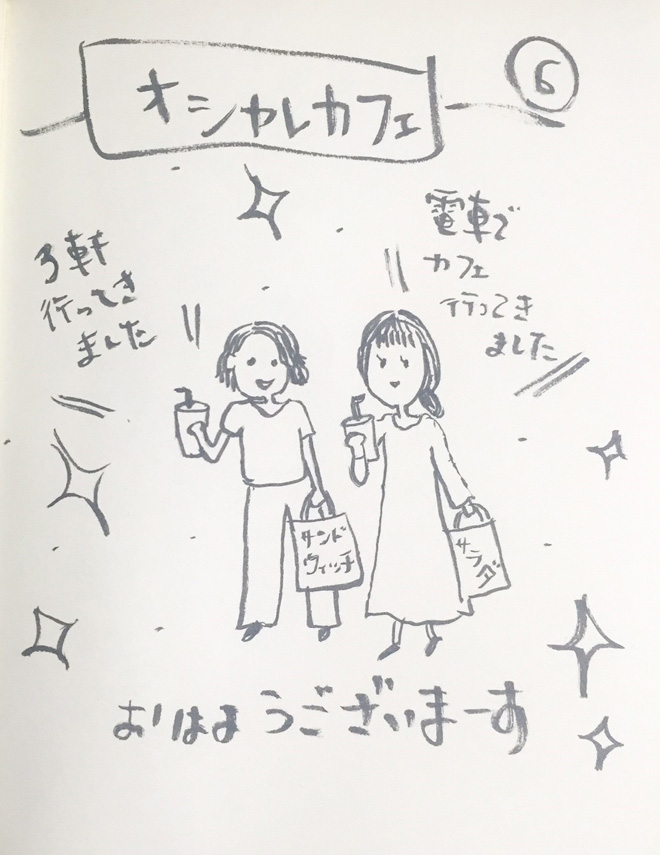 オシャレカフェ
6
3軒
行ってき
ました
電車で
カフェ
行ってき
ました
サンド
ウィッチ
サラダ
おはようございまーす